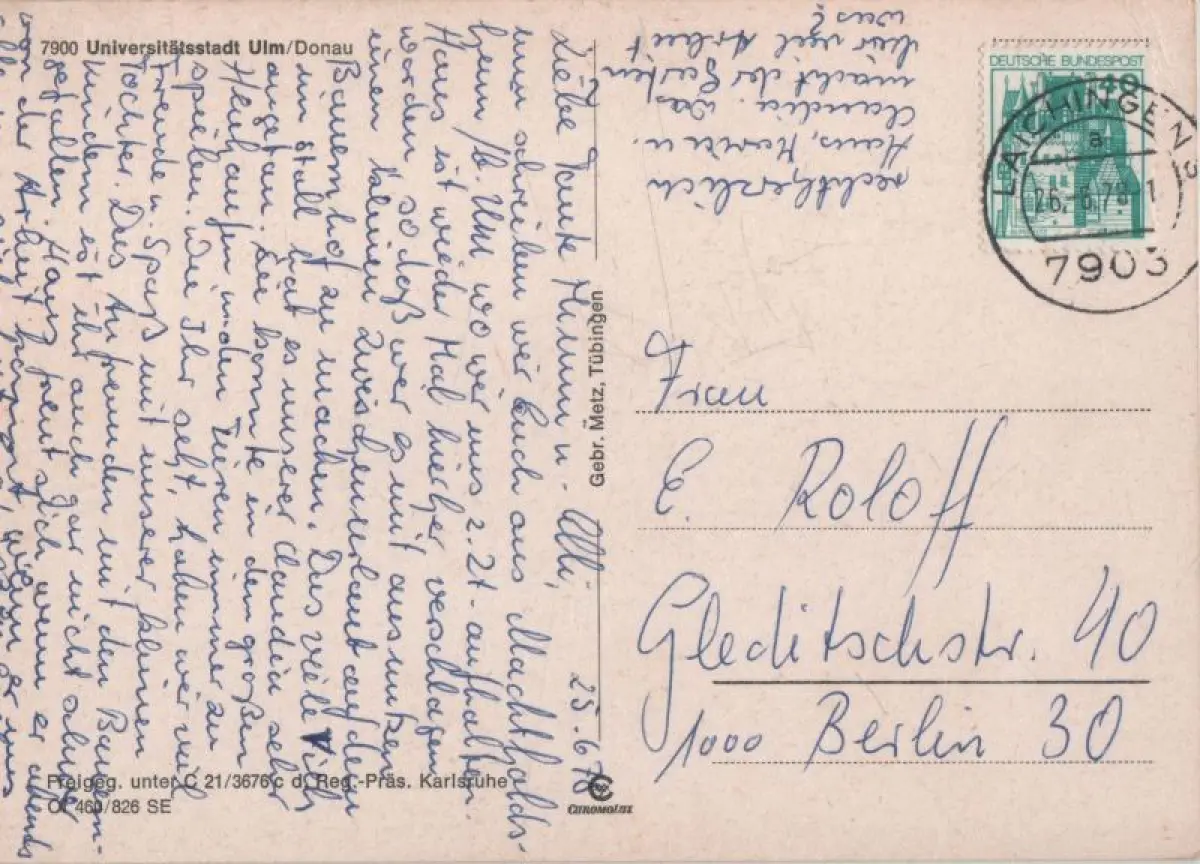 7900 Universitätsstadt Ulm/Donau
25.6.78
Liebe Tante Mimm u. Ulli,
nun schreiben wir Euch aus Machtolds-
heim b. Ulm wo wir uns z. Zt. aufhalten.
Hans ist wieder Mal hierher verschlagen
worden so daß wir es mit ausnutzen
einen kleinen Zwischenurlaub auf dem
Bauernhof zu machen. Das viele Vieh
im Stall hat es unserer Claudia sehr
angetan. Sie könnte in dem großen
Heuhaufen in den Tieren immer zu
spielen. Wie Ihr seht, haben wir viel
Freude u. Spaß mit unserer kleinen
Tochter. Das Anfreunden mit den Bauern-
kindern ist ihr auch gar nicht schwer
gefallen. Hans freut sich wenn er abends
von der Arbeit kommt, wenn er uns
recht herzlich
Hans, u.
Claudia. Was
macht der Garten
hier viel Arbeit
was?
Gebr. Metz, Tübingen
DEUTSCHE BUNDESPOST
LAICHINGEN
a
26.-6.78
7903
Frau
E. Roloff
Gleditschstr. 40
1000 Berlin 30
Freigeg. unter C 21/3676 c d. Reg.-Präs. Karlsruhe
460/826 SE
CHROMOLUX